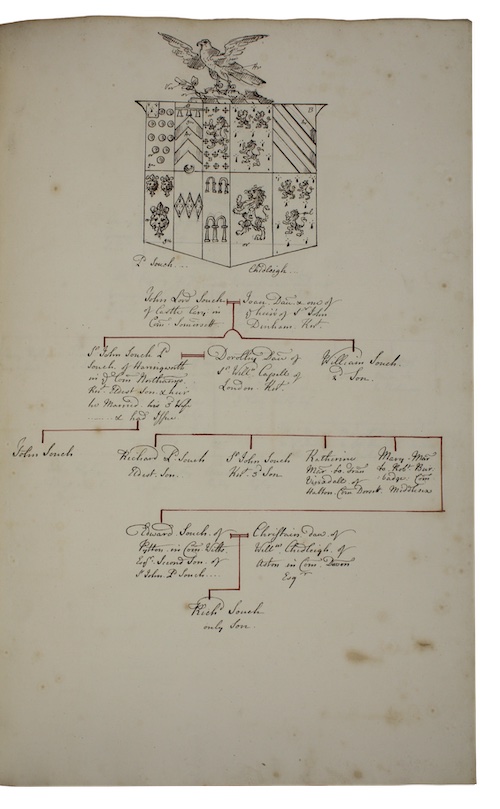 Ld. Souch...
Chidleigh...
John Lord Souch
of Castle Cary in
Com. Somersett
Joan, Dau. & one of
ye heirs of Sr. John
Denham Knt.
Sr. John Souch Ld.
Souch, of
in ye Com. Northamp.
Knt. Eldest Son & heir
he Married his 2d. Wife
& had Issue
Dorothy Dau. of
Sr. Willm. Capelle of
London. Knt.
William Souch.
2d. Son.
John Souch
Richard Ld. Souch
Eldest Son.
Sr. John Souch
Knt. 2d. Son
Katherine
Mar. to
of
Com. Dorset.
Mary Mar.
to Robt. Bur
Com
Middlesex
Edward Souch. of
Pytton. in Com Wilts.
Esqr. Second Son. of
Sr. John. Ld. Souch....
Christian dau. of
Willm. Chidleigh. of
Aston in Com. Devon
Esqr.
Richd. Souch
only Son.